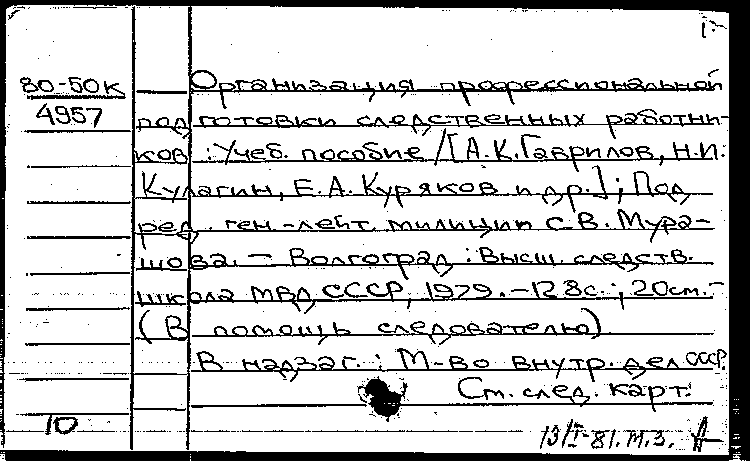 1.
80-50К
4957
Организация профессиональной
подготовки следственных работни-
ков : Учеб. пособие / [А.К. Гаврилов, Н.И.
Кулагин, Е.А. Куряков и др.] ; Под
ред. ген.-лейт. милиции С.В. Мура-
шова. – Волгоград : Высш. следств.
школа МВД СССР, 1979. – 128с. ; 20см. –
(В помощь следователю)
В надзаг. : М-во внутр. дел СССР.
См. след. карт.
10
13/I-81. М.З.